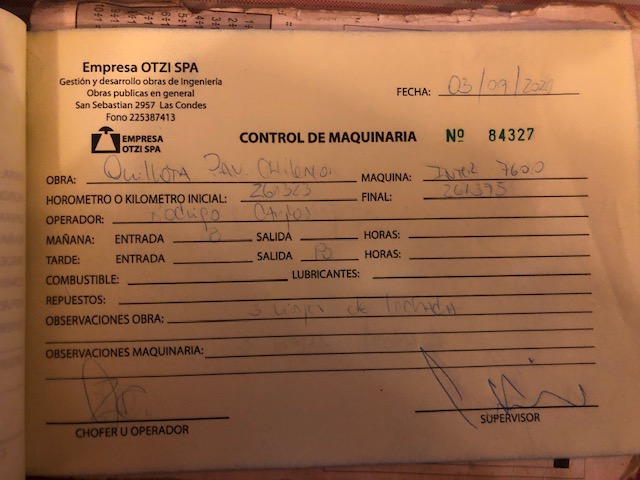 Empresa OTZI SPA
Gestión y desarrollo obras de Ingeniería
Obras publicas en general
San Sebastian 2957 Las Condes
Fono 225387413
FECHA: 03/09/2021
EMPRESA
OTZI SPA
CONTROL DE MAQUINARIA Nº 84327
OBRA: Quillota MAQUINA: 7600
HOROMETRO O KILOMETRO INICIAL: 261323 FINAL: 261375
OPERADOR: Rodrigo
MAÑANA: ENTRADA 8 SALIDA HORAS:
TARDE: ENTRADA SALIDA 18 HORAS:
COMBUSTIBLE: LUBRICANTES:
REPUESTOS:
OBSERVACIONES OBRA: viajes de
OBSERVACIONES MAQUINARIA:
CHOFER U OPERADOR SUPERVISOR
10÷1
9÷1
8÷1
7÷1
6÷1
5÷1
4÷1
3÷1
2÷1
1÷1